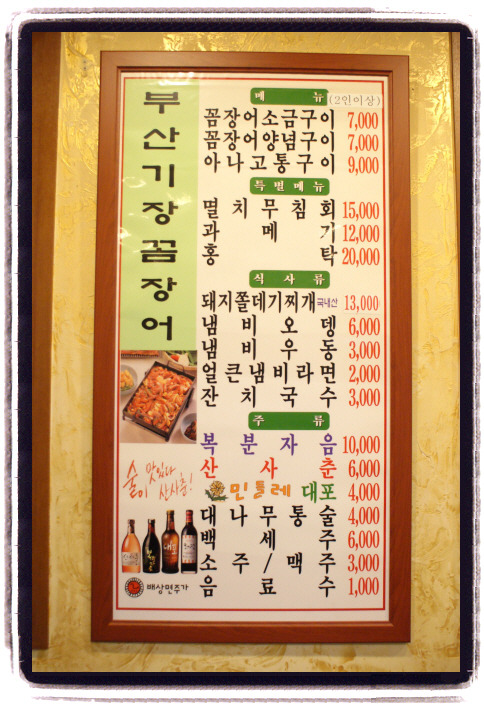 부산기장꼼장어
메뉴 (2인이상)
꼼장어소금구이 7,000
꼼장어양념구이 7,000
아나고통구이 9,000
특별메뉴
멸치무침회 15,000
과메기 12,000
홍탁 20,000
식사류
돼지쫄데기찌개 국내산 13,000
냄비오뎅 6,000
냄비우동 3,000
얼큰냄비라면 2,000
잔치국수 3,000
주류
복분자음 10,000
산사춘 6,000
민들레 대포 4,000
대나무통술 4,000
백세주 6,000
소주/맥주 3,000
음료수 1,000
술이 맛있다
산사춘!
배상면주가